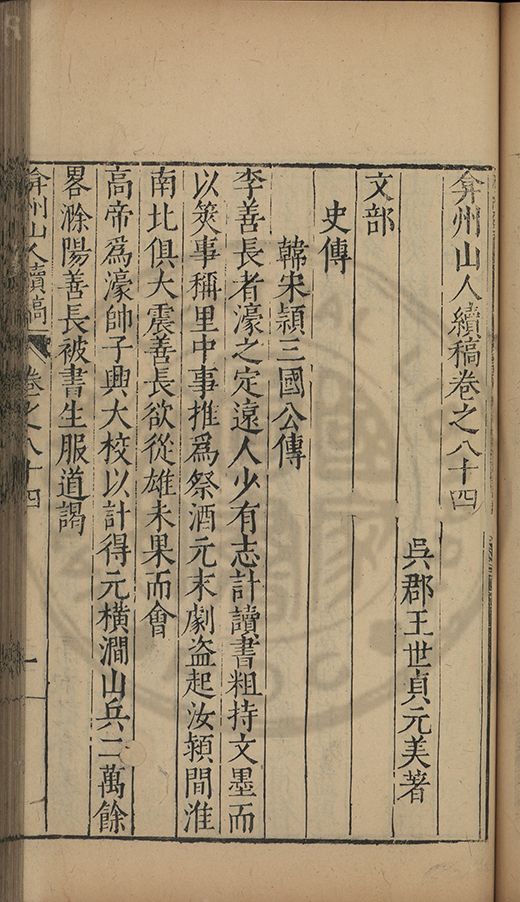 弇州山人續稿卷之八十四
吳郡王世貞元美著
文部
史傳
韓宋潁三國公傳
李善長者濠之定遠人少有志計讀書粗持文墨而
以筴事稱里中事推爲祭酒元末劇盗起汝潁間淮
南北俱大震善長欲從雄未果而會
高帝爲濠帥子興大校以計得元橫澗山兵二萬餘
畧滁陽善長被書生服道謁
弇州山人續稿 卷之八十四 一